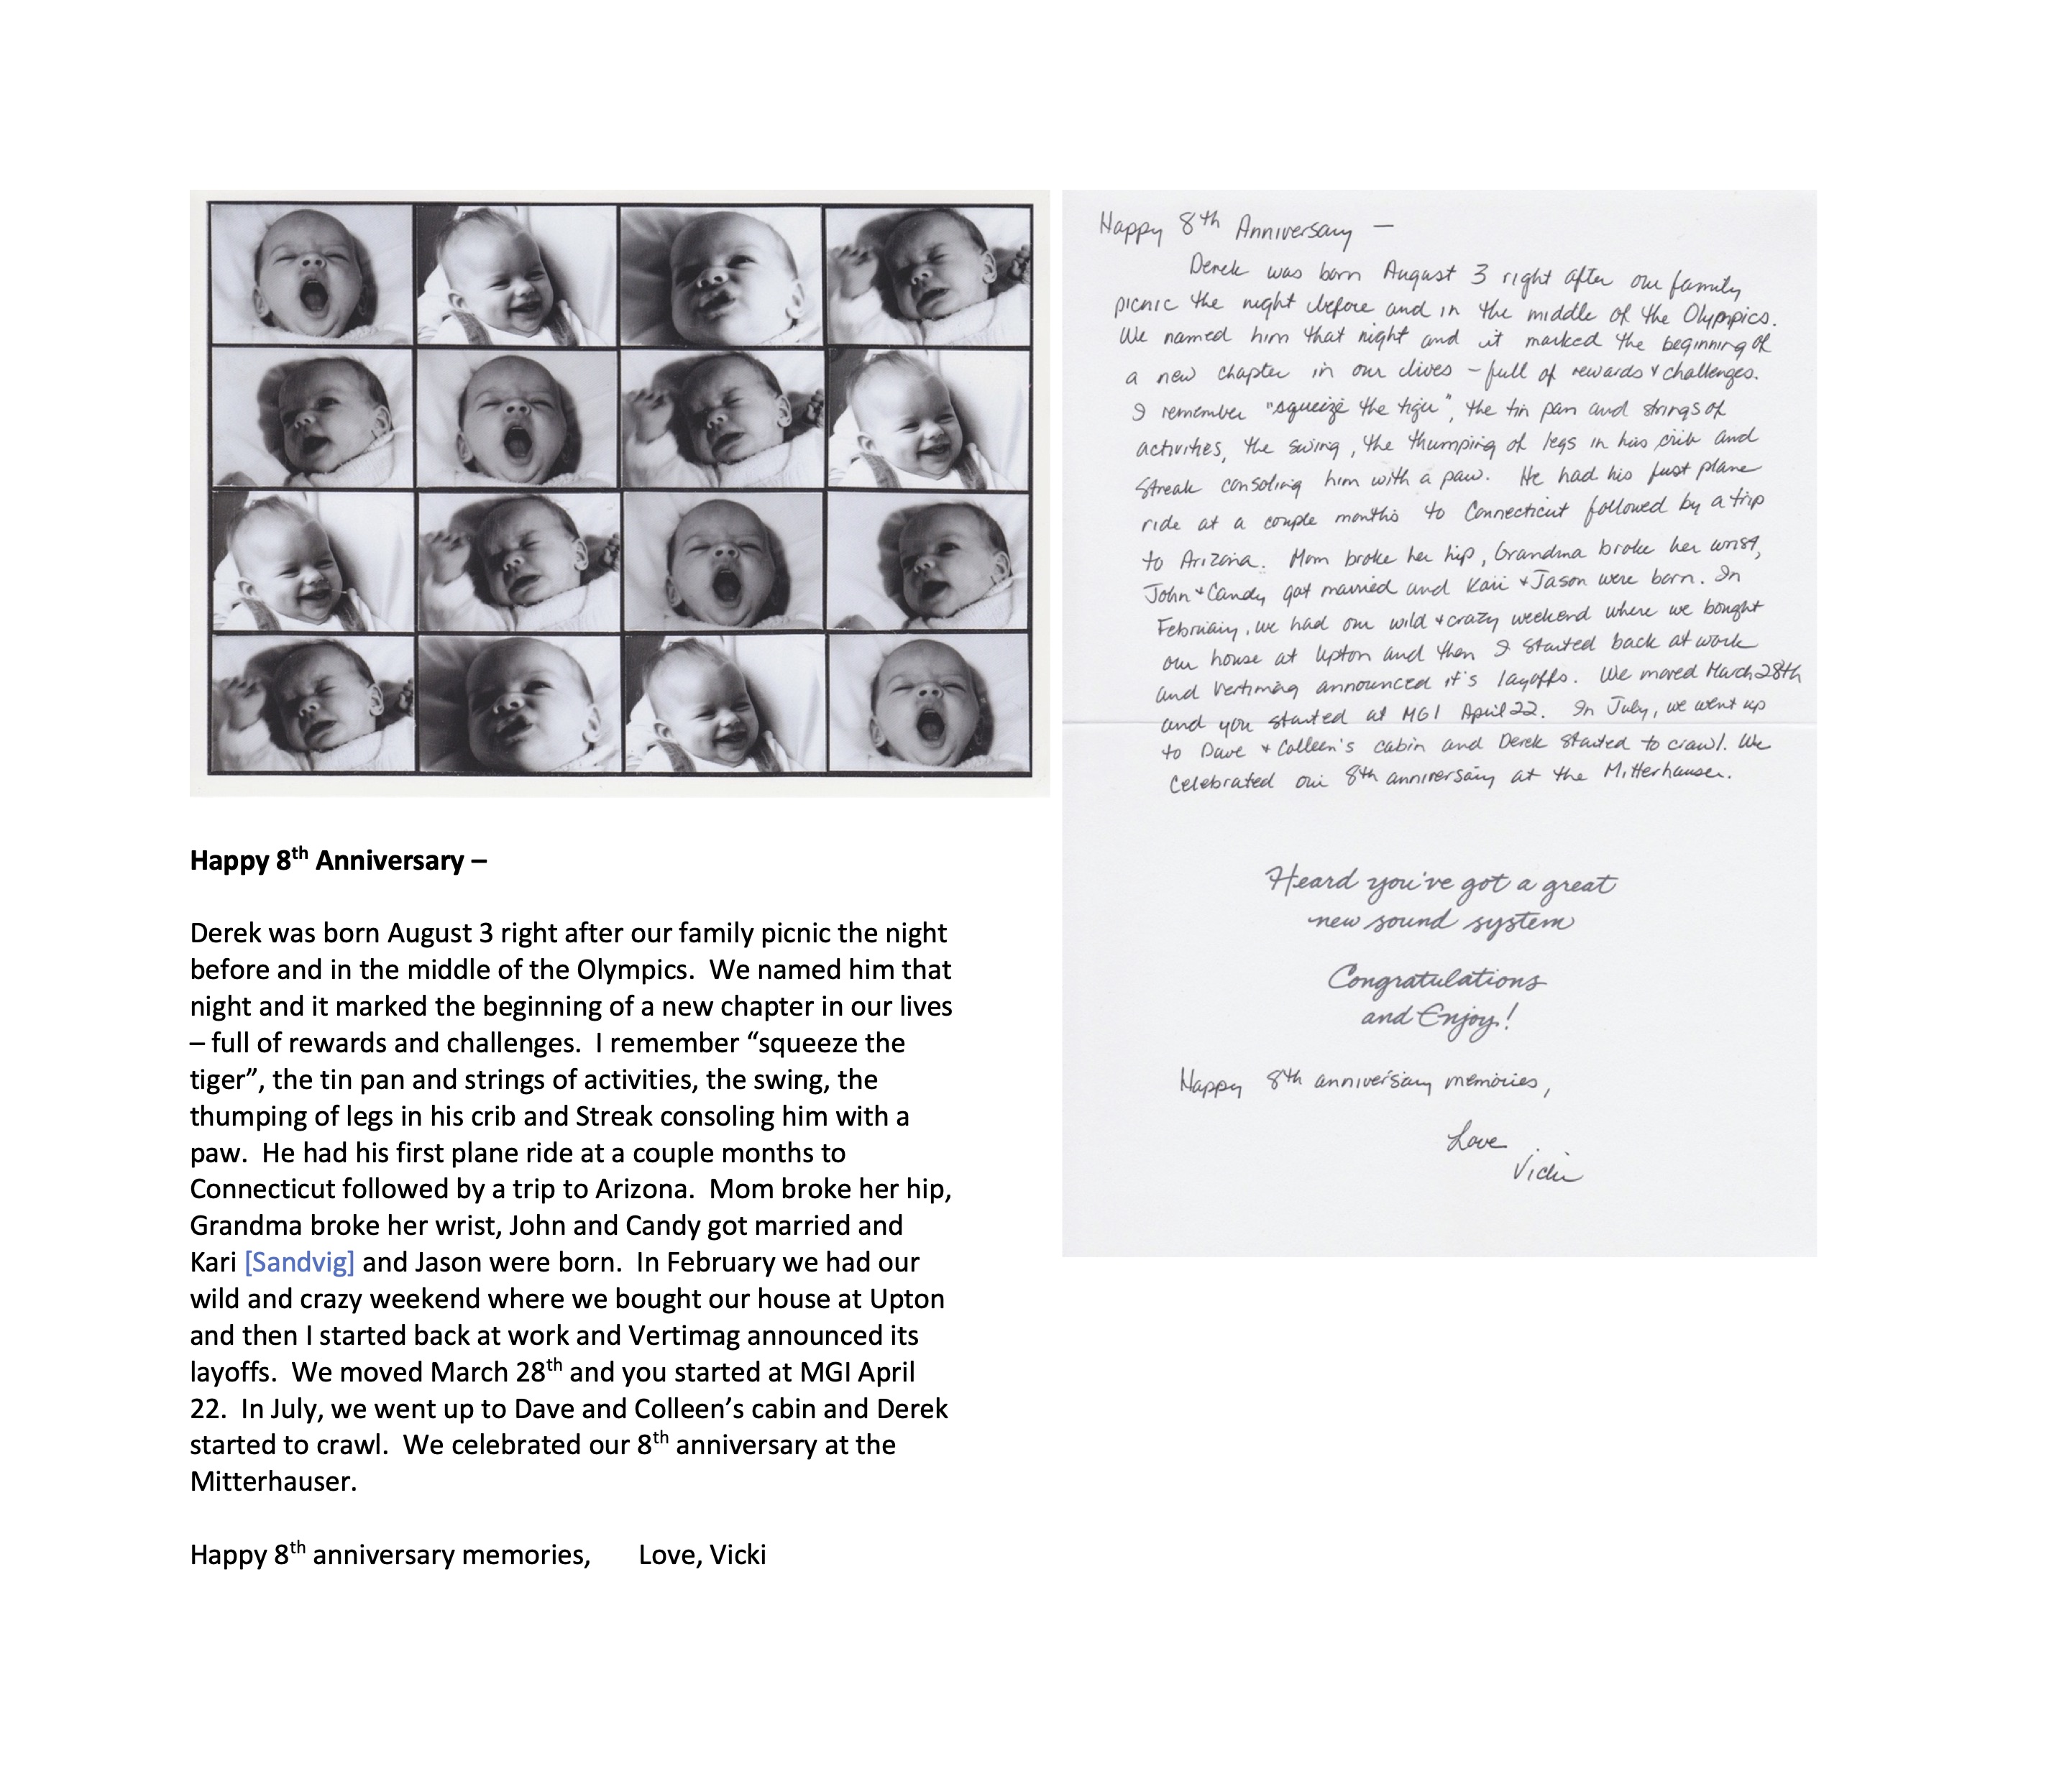 Happy 8th Anniversary —
Derek was born August 3 right after our family
picnic the night before and in the middle of the Olympics.
We named him that night and it marked the beginning of
a new chapter in our lives – full of rewards & challenges.
I remember "squeeze the tiger", the tin pan and strings of
activities, the swing, the thumping of legs in his crib and
Streak consoling him with a paw. He had his first plane
ride at a couple months to Connecticut followed by a trip
to Arizona. Mom broke her hip, Grandma broke her wrist,
John & Candy got married and Kari & Jason were born. In
February, we had our wild & crazy weekend where we bought
our house at Upton and then I started back at work
and Vertimag announced it's layoffs. We moved March 28th
and you started at MGI April 22. In July, we went up
to Dave & Colleen's cabin and Derek started to crawl. We
celebrated our 8th anniversary at the Mitterhauser.
Heard you've got a great
new sound system
Congratulations
and Enjoy!
Happy 8th anniversary memories,
Love
Vicki
Happy 8th Anniversary –
Derek was born August 3 right after our family picnic the night
before and in the middle of the Olympics. We named him that
night and it marked the beginning of a new chapter in our lives
– full of rewards and challenges. I remember “squeeze the
tiger”, the tin pan and strings of activities, the swing, the
thumping of legs in his crib and Streak consoling him with a
paw. He had his first plane ride at a couple months to
Connecticut followed by a trip to Arizona. Mom broke her hip,
Grandma broke her wrist, John and Candy got married and
Kari [Sandvig] and Jason were born. In February we had our
wild and crazy weekend where we bought our house at Upton
and then I started back at work and Vertimag announced its
layoffs. We moved March 28th and you started at MGI April
22. In July, we went up to Dave and Colleen’s cabin and Derek
started to crawl. We celebrated our 8th anniversary at the
Mitterhauser.
Happy 8th anniversary memories, Love, Vicki